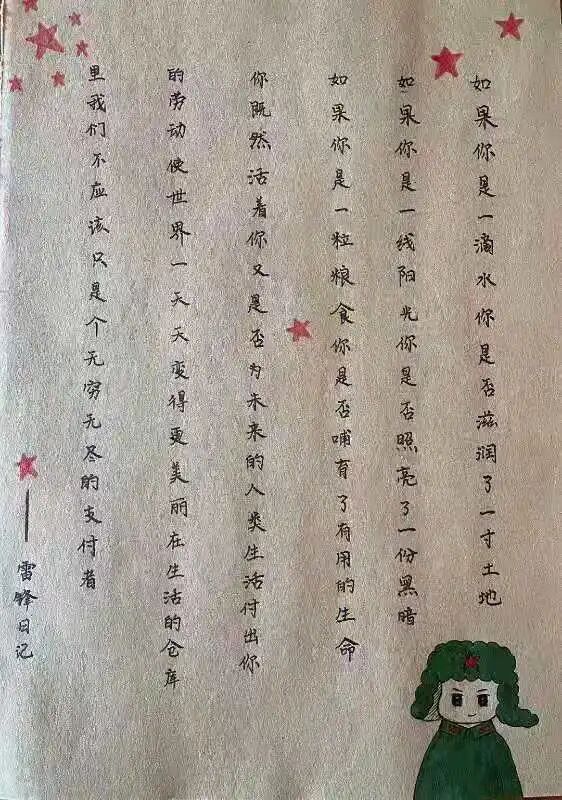 如果你是一滴水你是否滋润了一寸土地
如果你是一线阳光你是否照亮了一份黑暗
如果你是一粒粮食你是否哺育了有用的生命
你既然活着你又是否为未来的人类生活付出你
的劳动使世界一天天变得更美丽在生活的仓库
里我们不应该只是个无穷无尽的支付者
——雷锋日记